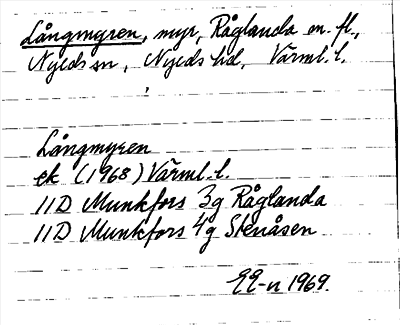 Långmyren, myr, Råglanda en. fl.,
Nyeds sn, Nyeds hd, Värml. l.
Långmyren
ek (1968) Värml. l.
11D Munkfors 3g Råglanda
11D Munkfors 4g Stenåsen
EE-n 1969.